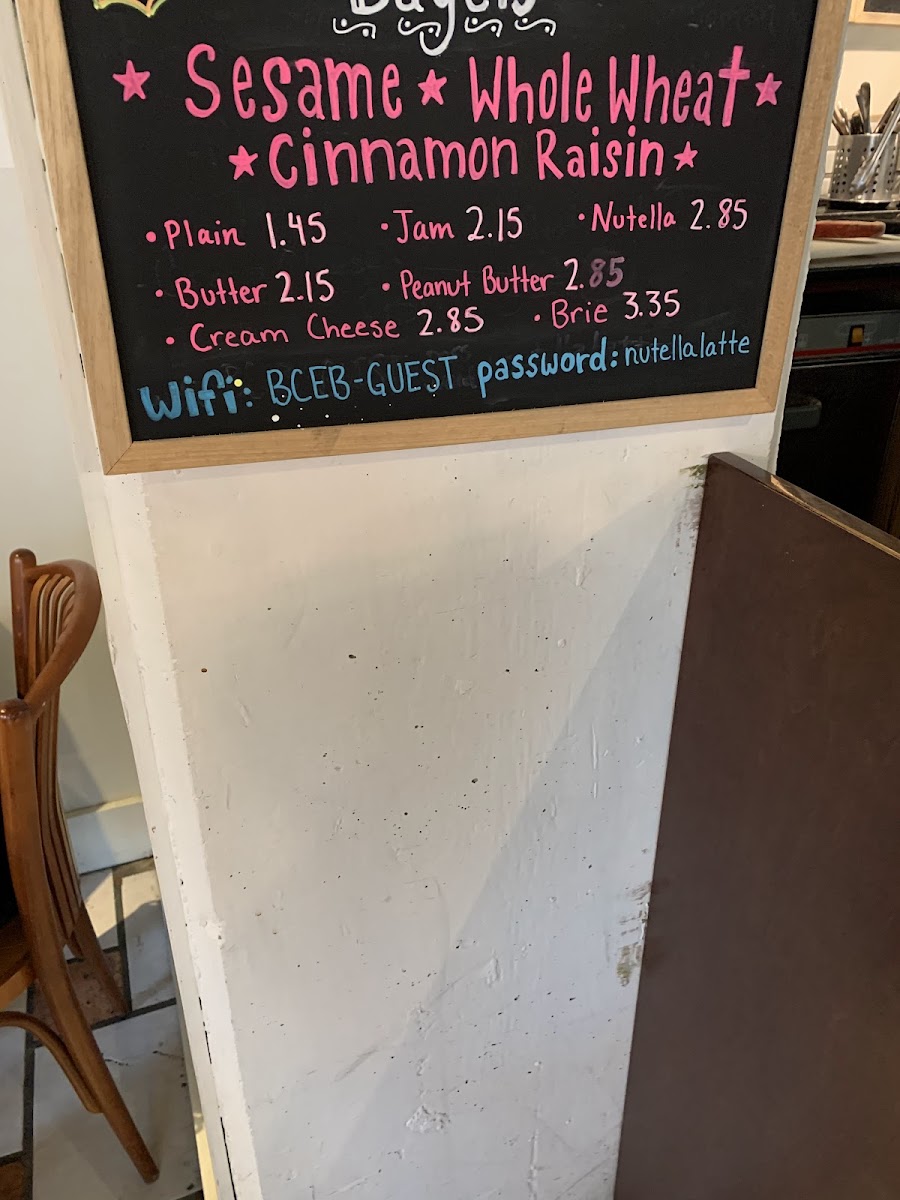 Bagels
Sesame ★ Whole Wheat
Cinnamon Raisin
• Plain 1.45 • Jam 2.15 • Nutella 2.85
• Butter 2.15 • Peanut Butter 2.85
• Cream Cheese 2.85 • Brie 3.35
Wifi: BCEB-GUEST password: nutellalatte